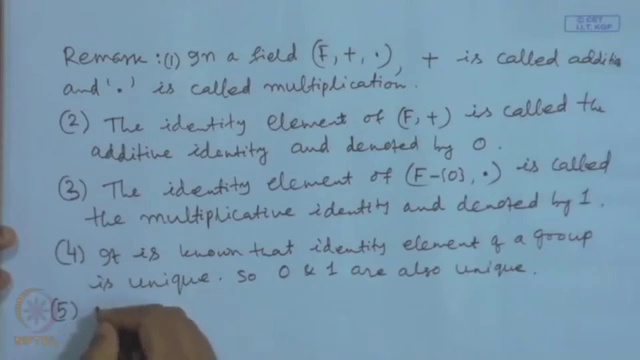 Remark : (1) In a field (F, +, ·), + is called additive
and '·' is called multiplication.
(2) The identity element of (F, +) is called the
additive identity and denoted by 0.
(3) The identity element of (F-{0}, ·) is called
the multiplicative identity and denoted by 1.
(4) It is known that identity element of a group
is unique. So 0 & 1 are also unique.
(5)
© CET
I.I.T. KGP
NPTEL